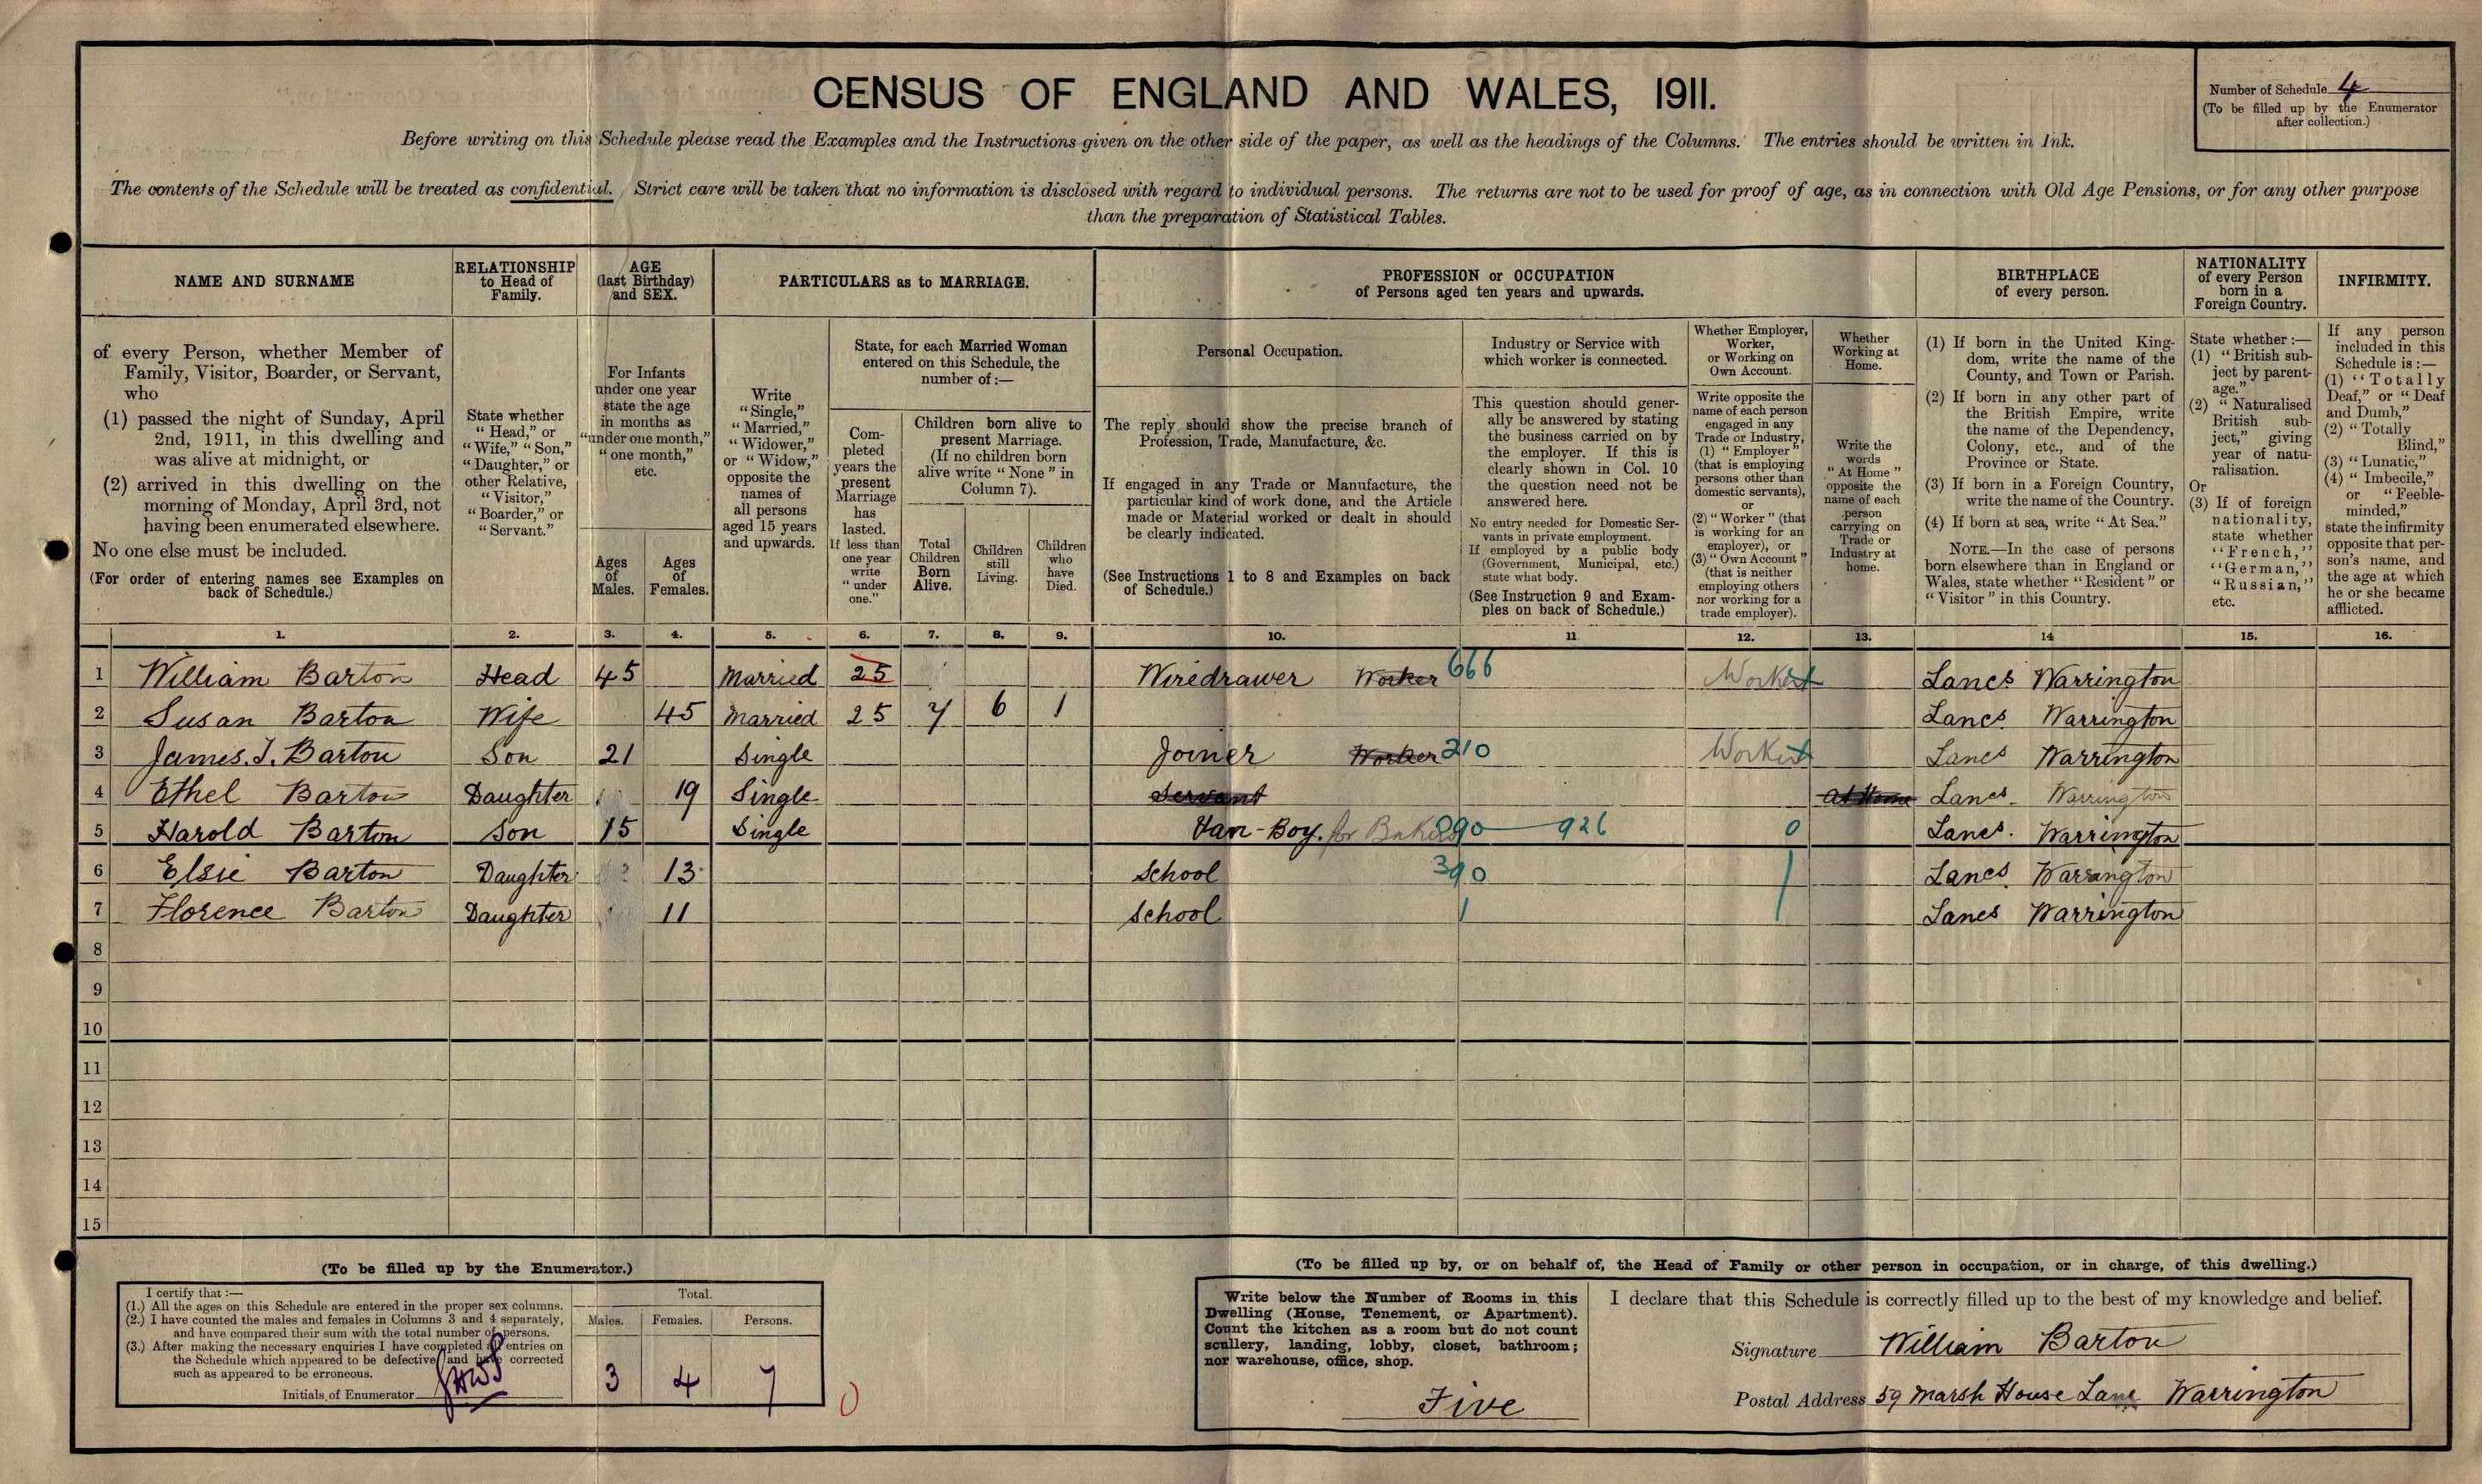 CENSUS OF ENGLAND AND WALES, 1911.
Number of Schedule 4
(To be filled up by the Enumerator
after collection.)
Before writing on this Schedule please read the Examples and the Instructions given on the other side of the paper, as well as the headings of the Columns. The entries should be written in Ink.
The contents of the Schedule will be treated as confidential. Strict care will be taken that no information is disclosed with regard to individual persons. The returns are not to be used for proof of age, as in connection with Old Age Pensions, or for any other purpose
than the preparation of Statistical Tables.
NAME AND SURNAME
RELATIONSHIP
to Head of
Family.
AGE
(last Birthday)
and SEX.
PARTICULARS as to MARRIAGE.
PROFESSION or OCCUPATION
of Persons aged ten years and upwards.
BIRTHPLACE
of every person.
NATIONALITY
of every Person
born in a
Foreign Country.
INFIRMITY.
of every Person, whether Member of
Family, Visitor, Boarder, or Servant,
who
(1) passed the night of Sunday, April
2nd, 1911, in this dwelling and
was alive at midnight, or
(2) arrived in this dwelling on the
morning of Monday, April 3rd, not
having been enumerated elsewhere.
No one else must be included.
(For order of entering names see Examples on
back of Schedule.)
State whether
"Head," or
"Wife," "Son,"
"Daughter," or
other Relative,
"Visitor,"
"Boarder," or
"Servant."
For Infants
under one year
state the age
in months as
"under one month,"
"one month,"
etc.
Ages
of
Males.
Ages
of
Females.
Write
"Single,"
"Married,"
"Widower,"
or "Widow,"
opposite the
names of
all persons
aged 15 years
and upwards.
State, for each Married Woman
entered on this Schedule, the
number of:—
Com-
pleted
years the
present
Marriage
has
lasted.
If less than
one year
write
"under
one."
Children born alive to
present Marriage.
(If no children born
alive write "None" in
Column 7).
Total
Children
Born
Alive.
Children
still
Living.
Children
who
have
Died.
Personal Occupation.
The reply should show the precise branch of
Profession, Trade, Manufacture, &c.
If engaged in any Trade or Manufacture, the
particular kind of work done, and the Article
made or Material worked or dealt in should
be clearly indicated.
(See Instructions 1 to 8 and Examples on back
of Schedule.)
Industry or Service with
which worker is connected.
This question should gener-
ally be answered by stating
the business carried on by
the employer. If this is
clearly shown in Col. 10
the question need not be
answered here.
No entry needed for Domestic Ser-
vants in private employment.
If employed by a public body
(Government, Municipal, etc.)
state what body.
(See Instruction 9 and Exam-
ples on back of Schedule.)
Whether Employer,
Worker,
or Working on
Own Account.
Write opposite the
name of each person
engaged in any
Trade or Industry,
(1) "Employer"
(that is employing
persons other than
domestic servants),
or
(2) "Worker" (that
is working for an
employer), or
(3) "Own Account"
(that is neither
employing others
nor working for a
trade employer).
Whether
Working at
Home.
Write the
words
"At Home"
opposite the
name of each
person
carrying on
Trade or
Industry at
home.
(1) If born in the United King-
dom, write the name of the
County, and Town or Parish.
(2) If born in any other part of
the British Empire, write
the name of the Dependency,
Colony, etc., and of the
Province or State.
(3) If born in a Foreign Country,
write the name of the Country.
(4) If born at sea, write "At Sea."
NOTE.—In the case of persons
born elsewhere than in England or
Wales, state whether "Resident" or
"Visitor" in this Country.
State whether:—
(1) "British sub-
ject by parent-
age."
(2) "Naturalised
British sub-
ject," giving
year of natu-
ralisation.
Or
(3) If of foreign
nationality,
state whether
"French,"
"German,"
"Russian,"
etc.
If any person
included in this
Schedule is:—
(1) "Totally
Deaf," or "Deaf
and Dumb,"
(2) "Totally
Blind,"
(3) "Lunatic,"
(4) "Imbecile,"
or "Feeble-
minded,"
state the infirmity
opposite that per-
son's name, and
the age at which
he or she became
afflicted.
1. 2. 3. 4. 5. 6. 7. 8. 9. 10. 11 12. 13. 14 15. 16.
1 William Barton Head 45 Married 25 Wiredrawer Worker 666 Worker Lancs Warrington
2 Susan Barton Wife 45 Married 25 7 6 1 Lancs Warrington
3 James. T. Barton Son 21 Single Joiner Worker 210 Worker Lancs Warrington
4 Ethel Barton Daughter 19 Single Servant At Home Lancs. Warrington
5 Harold Barton Son 15 Single Van-Boy. for 926 0 Lancs. Warrington
6 Elsie Barton Daughter 13 School 390 Lancs. Warrington
7 Florence Barton Daughter 11 School Lancs Warrington
8
9
10
11
12
13
14
15
(To be filled up by the Enumerator.)
I certify that:—
(1.) All the ages on this Schedule are entered in the proper sex columns.
(2.) I have counted the males and females in Columns 3 and 4 separately,
and have compared their sum with the total number of persons.
(3.) After making the necessary enquiries I have completed all entries on
the Schedule which appeared to be defective, and have corrected
such as appeared to be erroneous.
Initials of Enumerator
Total.
Males. Females. Persons.
3 4 7
0
(To be filled up by, or on behalf of, the Head of Family or other person in occupation, or in charge, of this dwelling.)
Write below the Number of Rooms in this
Dwelling (House, Tenement, or Apartment).
Count the kitchen as a room but do not count
scullery, landing, lobby, closet, bathroom;
nor warehouse, office, shop.
Five
I declare that this Schedule is correctly filled up to the best of my knowledge and belief.
Signature William Barton
Postal Address 59 Marsh House Lane Warrington